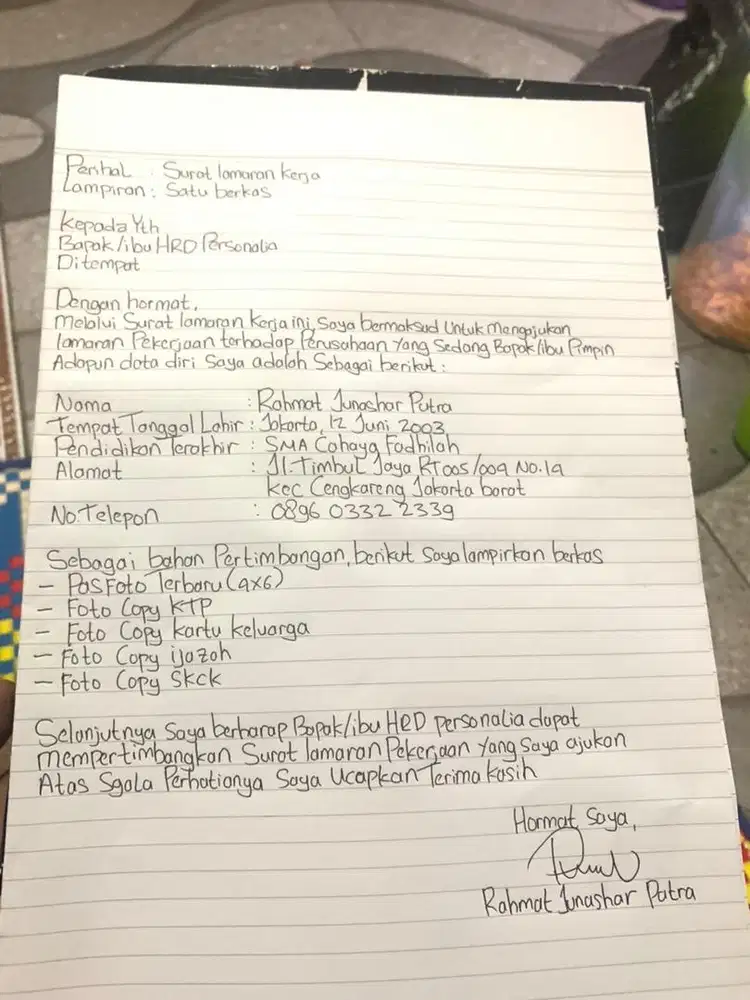 Perihal : Surat lamaran kerja
Lampiran : Satu berkas
Kepada Yth
Bapak/ibu HRD Personalia
Ditempat
Dengan hormat,
Melalui Surat lamaran kerja ini, Saya bermaksud Untuk Mengajukan
lamaran Pekerjaan terhadap Perusahaan Yang Sedang Bapak/ibu Pimpin
Adapun data diri Saya adalah Sebagai berikut :
Nama : Rahmat Junashar Putra
Tempat Tanggal Lahir : Jakarta, 12 Juni 2003
Pendidikan Terakhir : SMA Cahaya Fadhilah
Alamat : Jl. Timbul Jaya RT005/009 No.19
Kec Cengkareng Jakarta barat
No.Telepon : 0896 0332 2339
Sebagai bahan Pertimbangan, berikut Saya lampirkan berkas
- Pas Foto Terbaru (4x6)
- Foto Copy KTP
- Foto Copy kartu keluarga
- Foto Copy ijazah
- Foto Copy Skck
Selanjutnya Saya berharap Bapak/ibu HRD personalia dapat
mempertimbangkan Surat lamaran Pekerjaan Yang Saya ajukan
Atas Sgala Perhatianya Saya Ucapkan Terima kasih
Hormat Saya,
Rahmat Junashar Putra